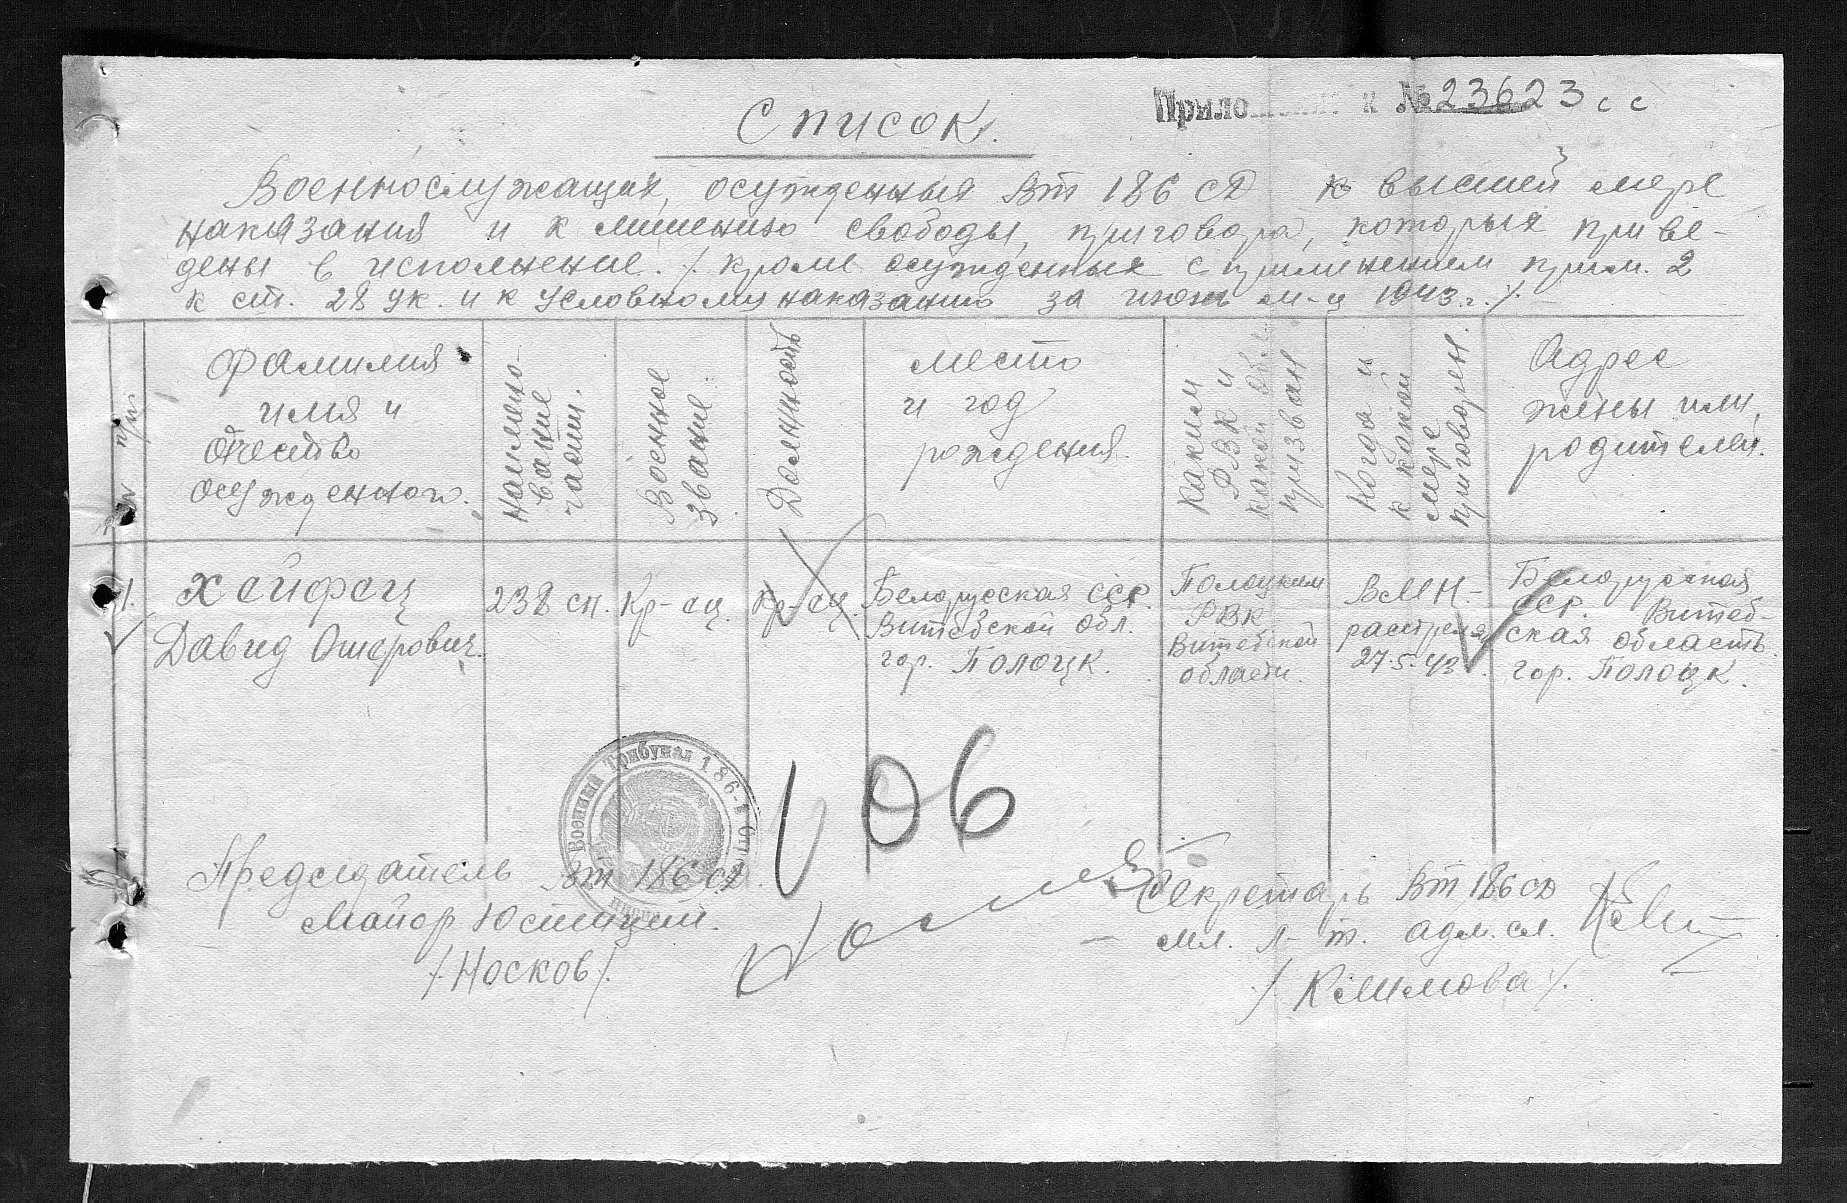 Приложение к № 23623сс
Список.
Военнослужащих, осужденных ВТ 186 СД к высшей мере
наказания и к лишению свободы, приговора, которых приве-
дены в исполнение. /. кроме осужденных с применением прим. 2
к ст. 28 УК. и к условному наказанию за июнь м-ц 1943 г. /.
п/п
Фамилия
имя и
Отчество
осужденного.
Наимено-
вание
части.
Военное
звание.
Должность
место
и год
рождения.
Каким
РВК и
какой обл.
призван
Когда и
к какой
мере
приговорен.
Адрес
жены или,
родителей.
1.
Хейфец
Давид Ошерович.
238 сп.
Кр-ец.
Кр-ец.
Белорусская ССР.
Витебской обл.
гор. Полоцк.
Полоцким
РВК
Витебской
области.
ВМН-
расстрел
27.5.43
Белорусская
ССР. Витеб-
ская область.
гор. Полоцк.
Военный Трибунал 186-й
06
Председатель ВТ 186 сд.
Майор Юстиции.
/.Носков/.
Секретарь ВТ 186 СД
мл. л-т. адм. сл.
/.Климова/.